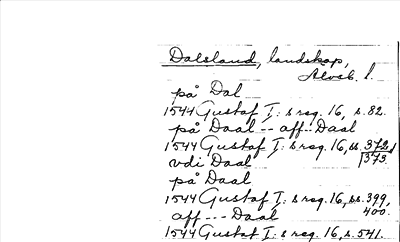 Dalsland, landskap,
Älvsb. l.
på Dal
1544 Gustaf I: s reg. 16, s. 82.
på Daal -- aff Daal
1544 Gustaf I: s reg. 16, ss. 372,
373.
vdi Daal
på Daal
1544 Gustaf I: s reg. 16, ss. 399,
400.
aff --- Daal
1544 Gustaf I: s reg. 16, s. 541.